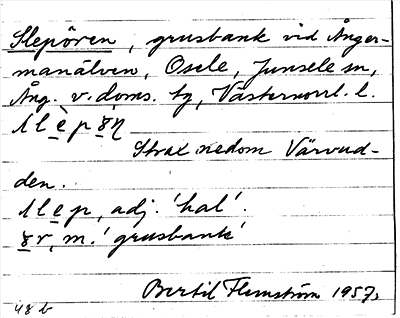 Slepören, grusbank vid Ånger-
manälven, Osele, Junsele sn,
Ång. v. doms. tg, Västernorrl. l.
Strax nedom Värvud-
den.
slep, adj. 'hal'.
ör, m. 'grusbank'
Bertil Flemström 1957.
48 b